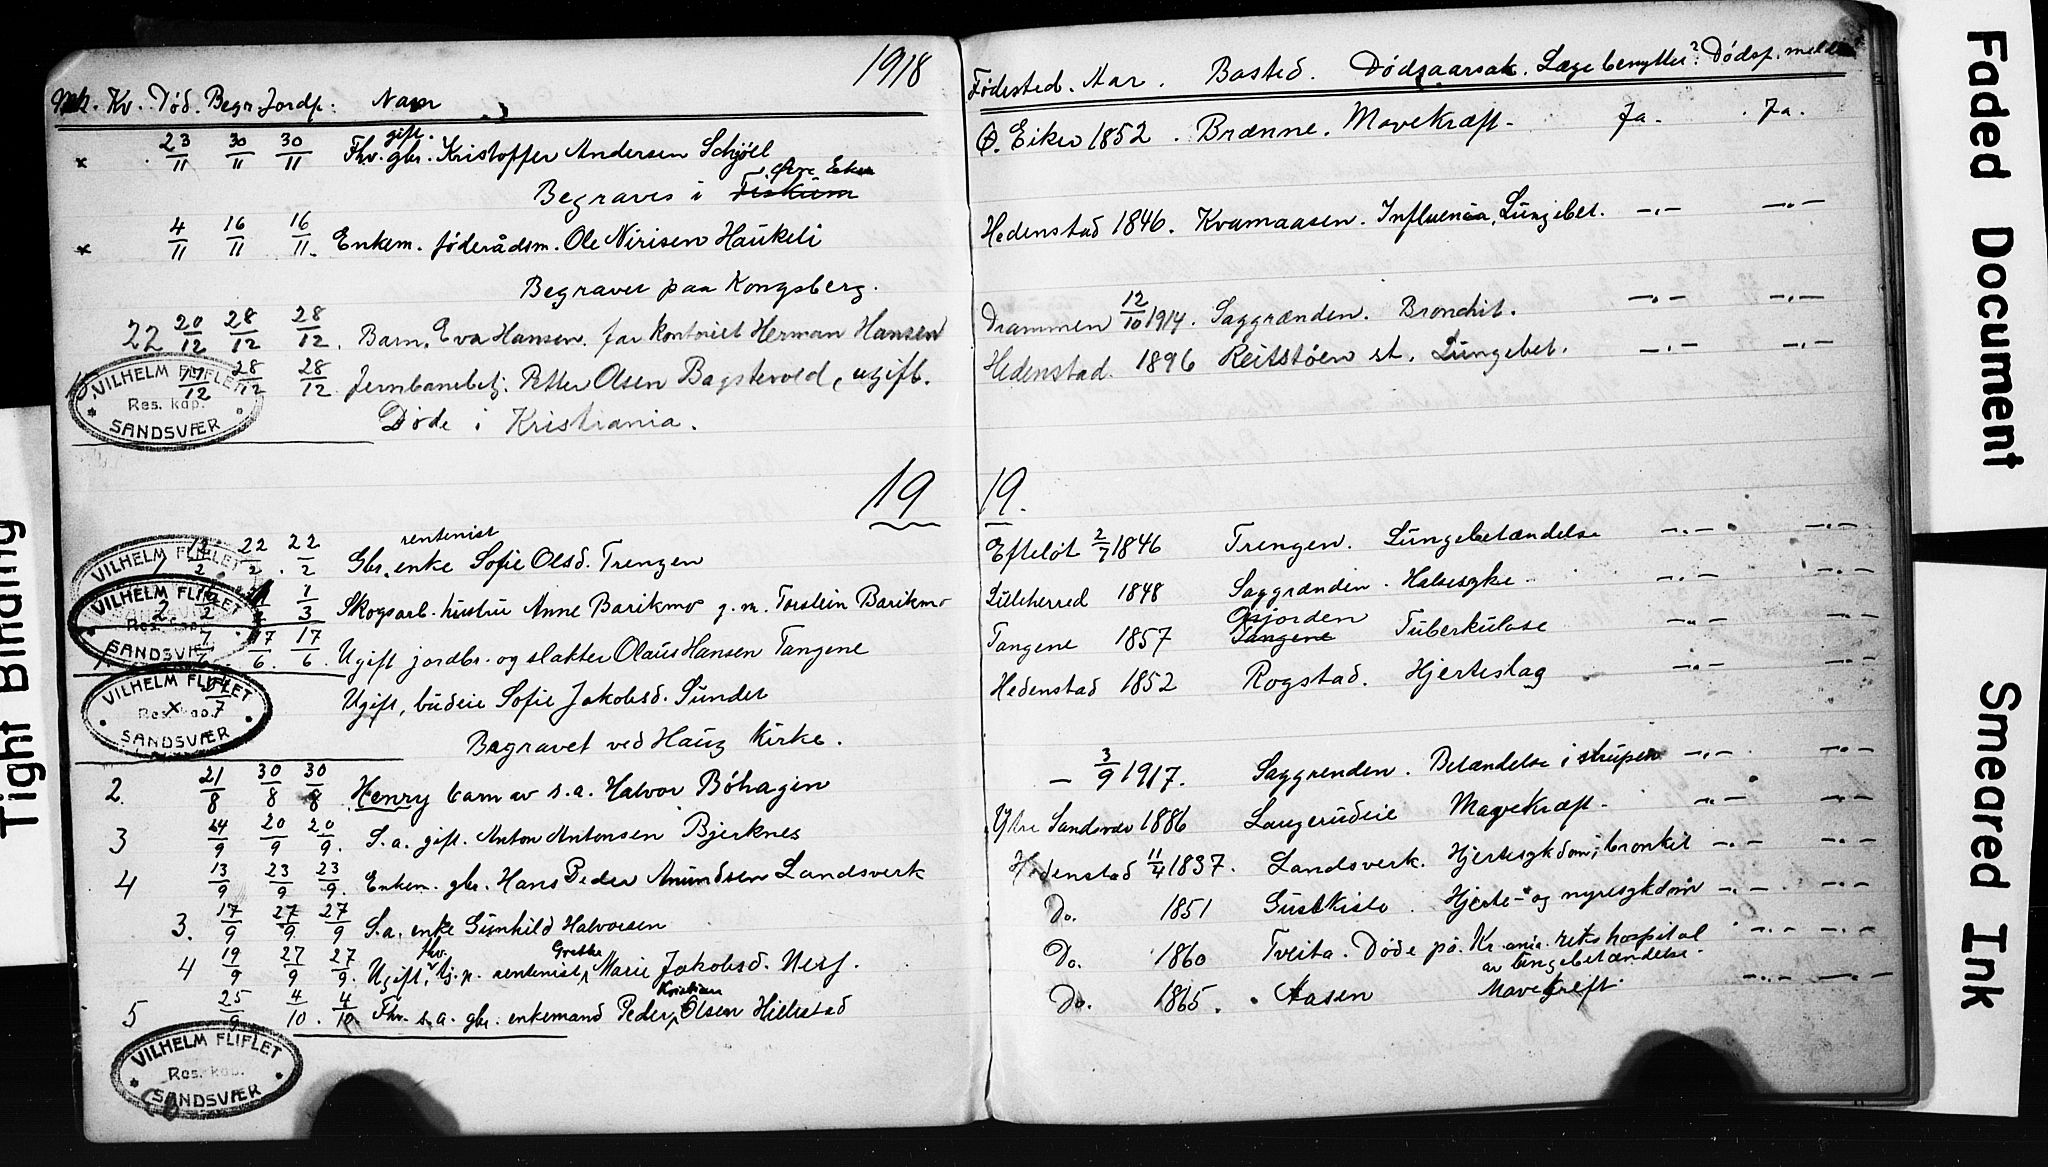 1918
Mk. Kv. Død. Begr. Jordp. Navn
Fødested. Aar. Bosted. Dødsaarsak. Læge benyttet? Dødsf. meldt
gift.
x 23/11 30/11 30/11 Fhv. gbr. Kristoffer Andersen Schjøll
Ø. Eiker 1852. Brænne. Mavekræft. Ja. Ja.
Øvre Eiker
Begraves i Fiskum
x 4/11 16/11 16/11. Enkem. føderådsm. Ole Nirisen Haukeli
Hedenstad 1846. Kvamaasen. Influensa, Lungebet. -.- -.-
Begravet paa Kongsberg.
22 20/12 28/12 28/12. Barn, Eva Hansen. far kontorist Herman Hansen
Drammen 12/10 1914. Saggrænden. Bronchit. -.- -.-
28/12 28/12 Jernbanebetj. Petter Olsen Bagstevold, ugift.
Hedenstad. 1896 Reitstøen st. Lungebet. -.- -.-
VILHELM FLIFLET
Res. kap.
SANDSVÆR
Døde i Kristiania.
19 19.
rentenist
12/2 22/2. 22/2 Gbr. enke Sofie Olsd. Trengen
Efteløt 2/7 1846 Trengen. Lungebetændelse -.- -.-
VILHELM FLIFLET
2 1/3 Skogsarb. hustru Anne Barikmo g. m. Torstein Barikmo
Lilleherred 1848 Saggrænden. Halsesyke -.- -.-
VILHELM FLIFLET
Res. kap.
SANDSVÆR
Øsjorden
7/6 17/6. 17/6. Ugift jordbr. og slakter Olaus Hansen Tangene
Tangene 1857 Tangene Tuberkulose -.- -.-
VILHELM FLIFLET
Res. kap.
SANDSVÆR
x 7 Ugift, budeie Sofie Jakobsd. Sundet
Hedenstad 1852 Rogstad. Hjerteslag -.- -.-
Begravet ved Haug Kirke.
2. 21/8 30/8 30/8 Henry barn av s.a. Halvor Bøhagen
- 3/9 1917. Saggrenden. Betændelse i strupen -.- -.-
3 14/9 20/9 20/9. S.a. gift. Anton Antonsen Bjerknes
Ytre Sandsvær 1886 Laugerudeie Mavekræft. -.- -.-
4 13/9 23/9 23/9. Enkem. gbr. Hans Peder Amundsen Landsverk
Hedenstad 11/4 1837. Landsverk. Hjertesykdom, bronkit -.- -.-
3. 17/9 27/9 27/9 S.a. enke Gunhild Halvorsen
Do. 1851 Hjerte- og nyresykdom -.- -.-
fhv. Grethe
4 19/9 27/9 27/9. Ugift, tj.p. rentenist, Marie Jakobsd. Nesj.
Do. 1860 Tveita. Døde på Kr.ania. rikshospital
av lungebetændelse. -.- -.-
Kristian
5 25/9 4/10. 4/10 Fhv. s.a. gbr. enkemand Peder Olsen Hillestad
Do. 1865. Aasen Mavekreft. -.- -.-
VILHELM FLIFLET
Res. kap.
SANDSVÆR
Faded Document
Smeared Ink
Tight Binding